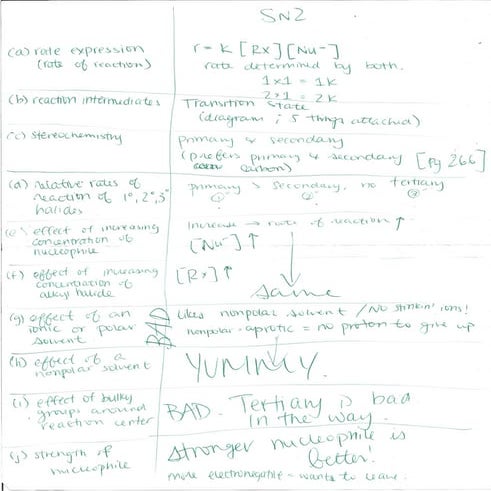 SN2
(a) rate expression
(rate of reaction)
r = k [Rx] [Nu-]
rate determined by both.
1x1 = 1k
2x1 = 2k
(b) reaction intermediates
Transition State
(diagram ; 5 things attached)
(c) stereochemistry
primary & secondary
(prefers primary & secondary [Pg 266]
carbon)
(d) relative rates of
reaction of 1°, 2°, 3°
halides
primary > secondary, no tertiary
(e) effect of increasing
concentration of
nucleophile
Increase → rate of reaction ↑
[Nu-] ↑
(f) effect of increasing
concentration of
alkyl halide
[Rx] ↑
same
(g) effect of an
ionic or polar
solvent.
BAD
Likes nonpolar solvent / No stinkin' ions!
nonpolar - aprotic = no proton to give up
(h) effect of a
nonpolar solvent
YUMMY.
(i) effect of bulky
groups around
reaction center
BAD. Tertiary is bad
in the way.
(j) strength of
nucleophile
Stronger nucleophile is
better!
more electronegative - wants to leave.